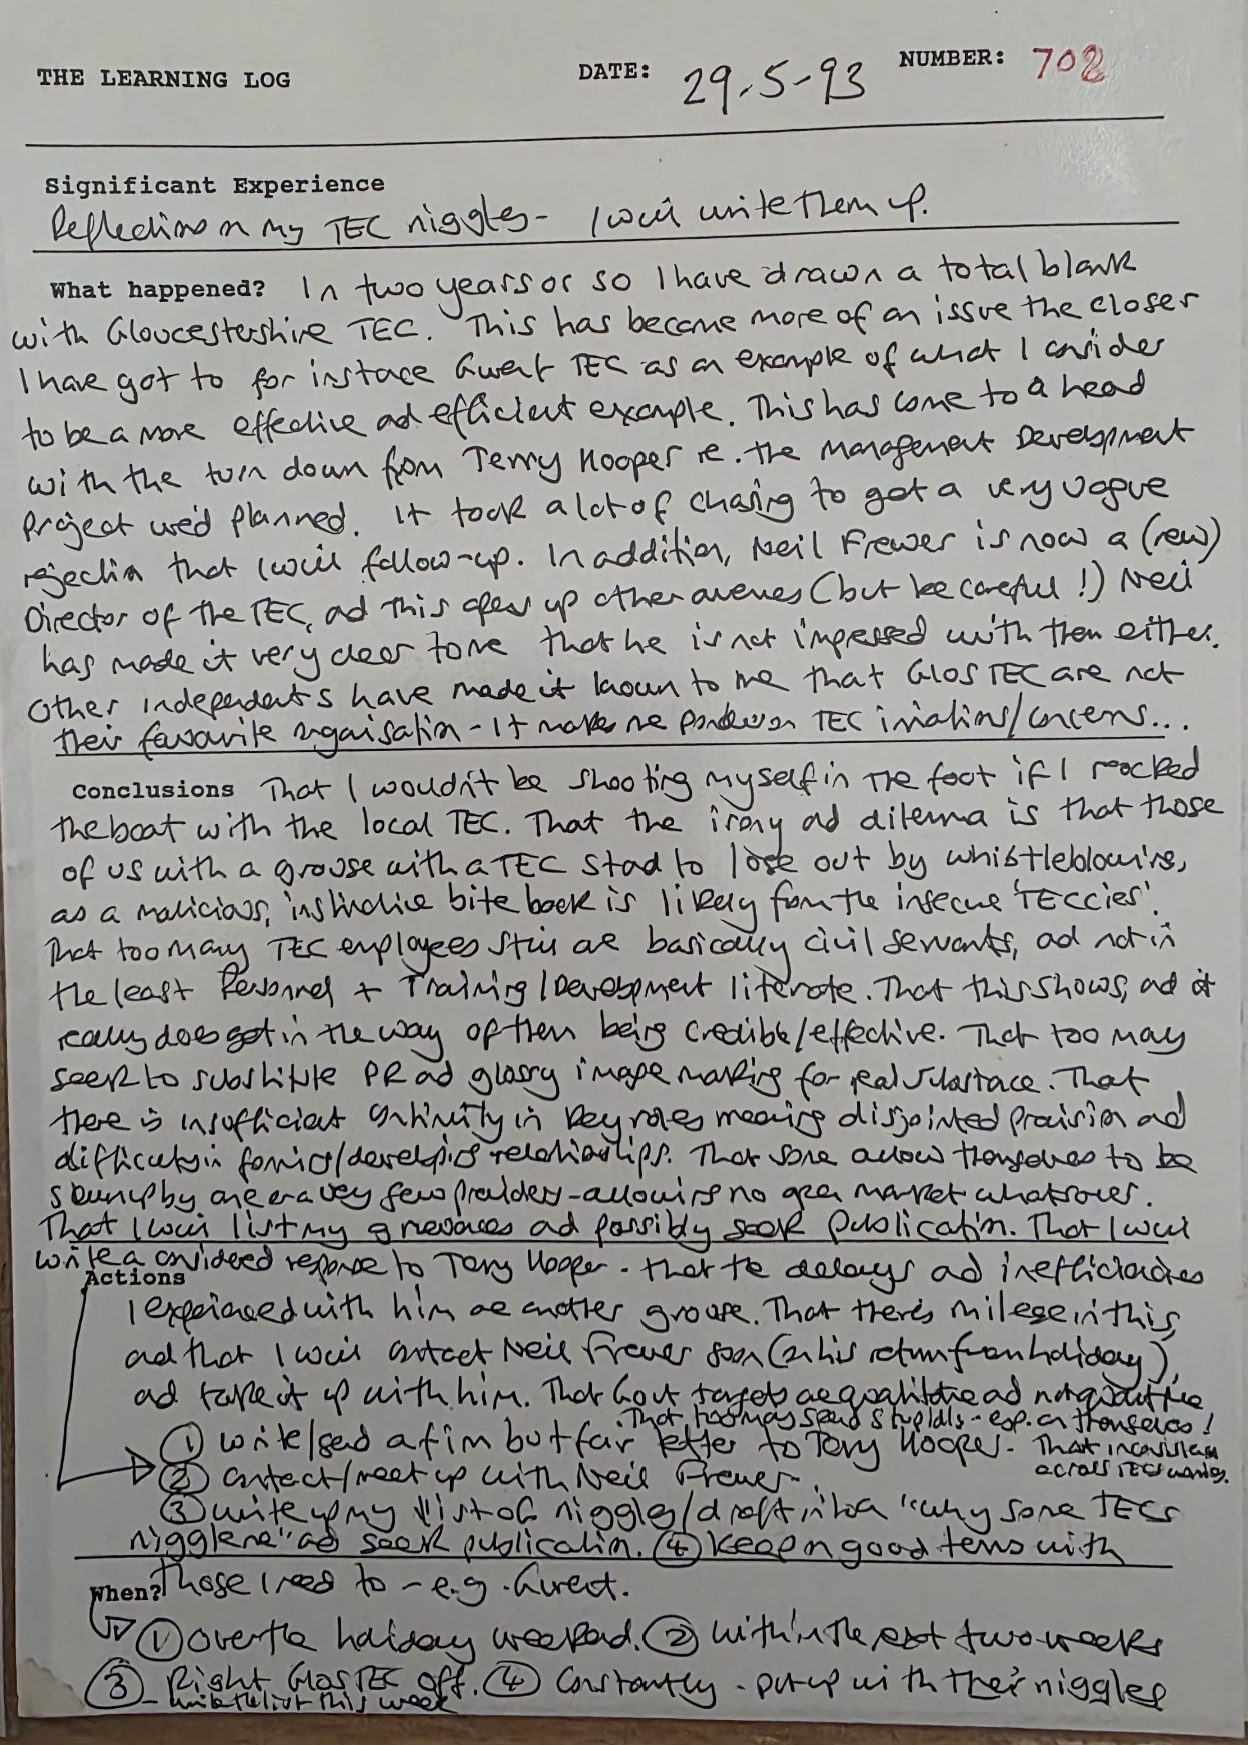 THE LEARNING LOG DATE: 29.5-93 NUMBER: 702
Significant Experience
Reflections on my TEC niggles - I will write them up.
What happened? In two years or so I have drawn a total blank
with Gloucestershire TEC. This has become more of an issue the closer
I have got to for instance Gwent TEC as an example of what I consider
to be a more effective and efficient example. This has come to a head
with the turn down from Terry Hooper re. the Management Development
Project we'd planned. It took a lot of chasing to get a very vague
rejection that I will follow-up. In addition, Neil Frewer is now a (new)
Director of the TEC, and this opens up other avenues (but be careful!) Neil
has made it very clear to me that he is not impressed with them either.
Other independents have made it known to me that Glos TEC are not
their favourite organisation - It makes me ponder on TEC irritations/concerns...
Conclusions That I wouldn't be shooting myself in the foot if I rocked
the boat with the local TEC. That the irony and dilema is that those
of us with a grouse with a TEC stand to lose out by whistleblowing,
as a malicious, instinctive bite back is likely from the insecure 'TECcies'.
That too many TEC employees still are basically civil servants, and not in
the least Personnel + Training/Development literate. That this shows, and it
really does get in the way of them being credible/effective. That too many
seek to substitute PR and glossy image making for real substance. That
there is insufficient continuity in key roles meaning disjointed provision and
difficulty in forming/developing relationships. That some allow themselves to be
sewn up by one or a very few providers - allowing no open market whatsoever.
That I will list my grievances and possibly seek publication. That I will
write a considered response to Terry Hooper - that the delays and inefficiencies
Actions
I experienced with him are another grouse. That there's mileage in this,
and that I will contact Neil Frewer soon (on his return from holiday),
and take it up with him. That Govt targets are qualitative and not quantitative
. That too many spend stupidly - esp. on themselves!
① write/send a firm but fair letter to Terry Hooper - That inconsistency
across TECs worries.
② contact/meet up with Neil Frewer.
③ write up my list of niggles/draft into a "why some TECs
niggle me" and seek publication. ④ Keep on good terms with
those I need to - e.g. Gwent.
When?
① over the holiday weekend. ② within the next two weeks
③ Right Glos TEC off. ④ Constantly - put up with their niggles
- write the list this week